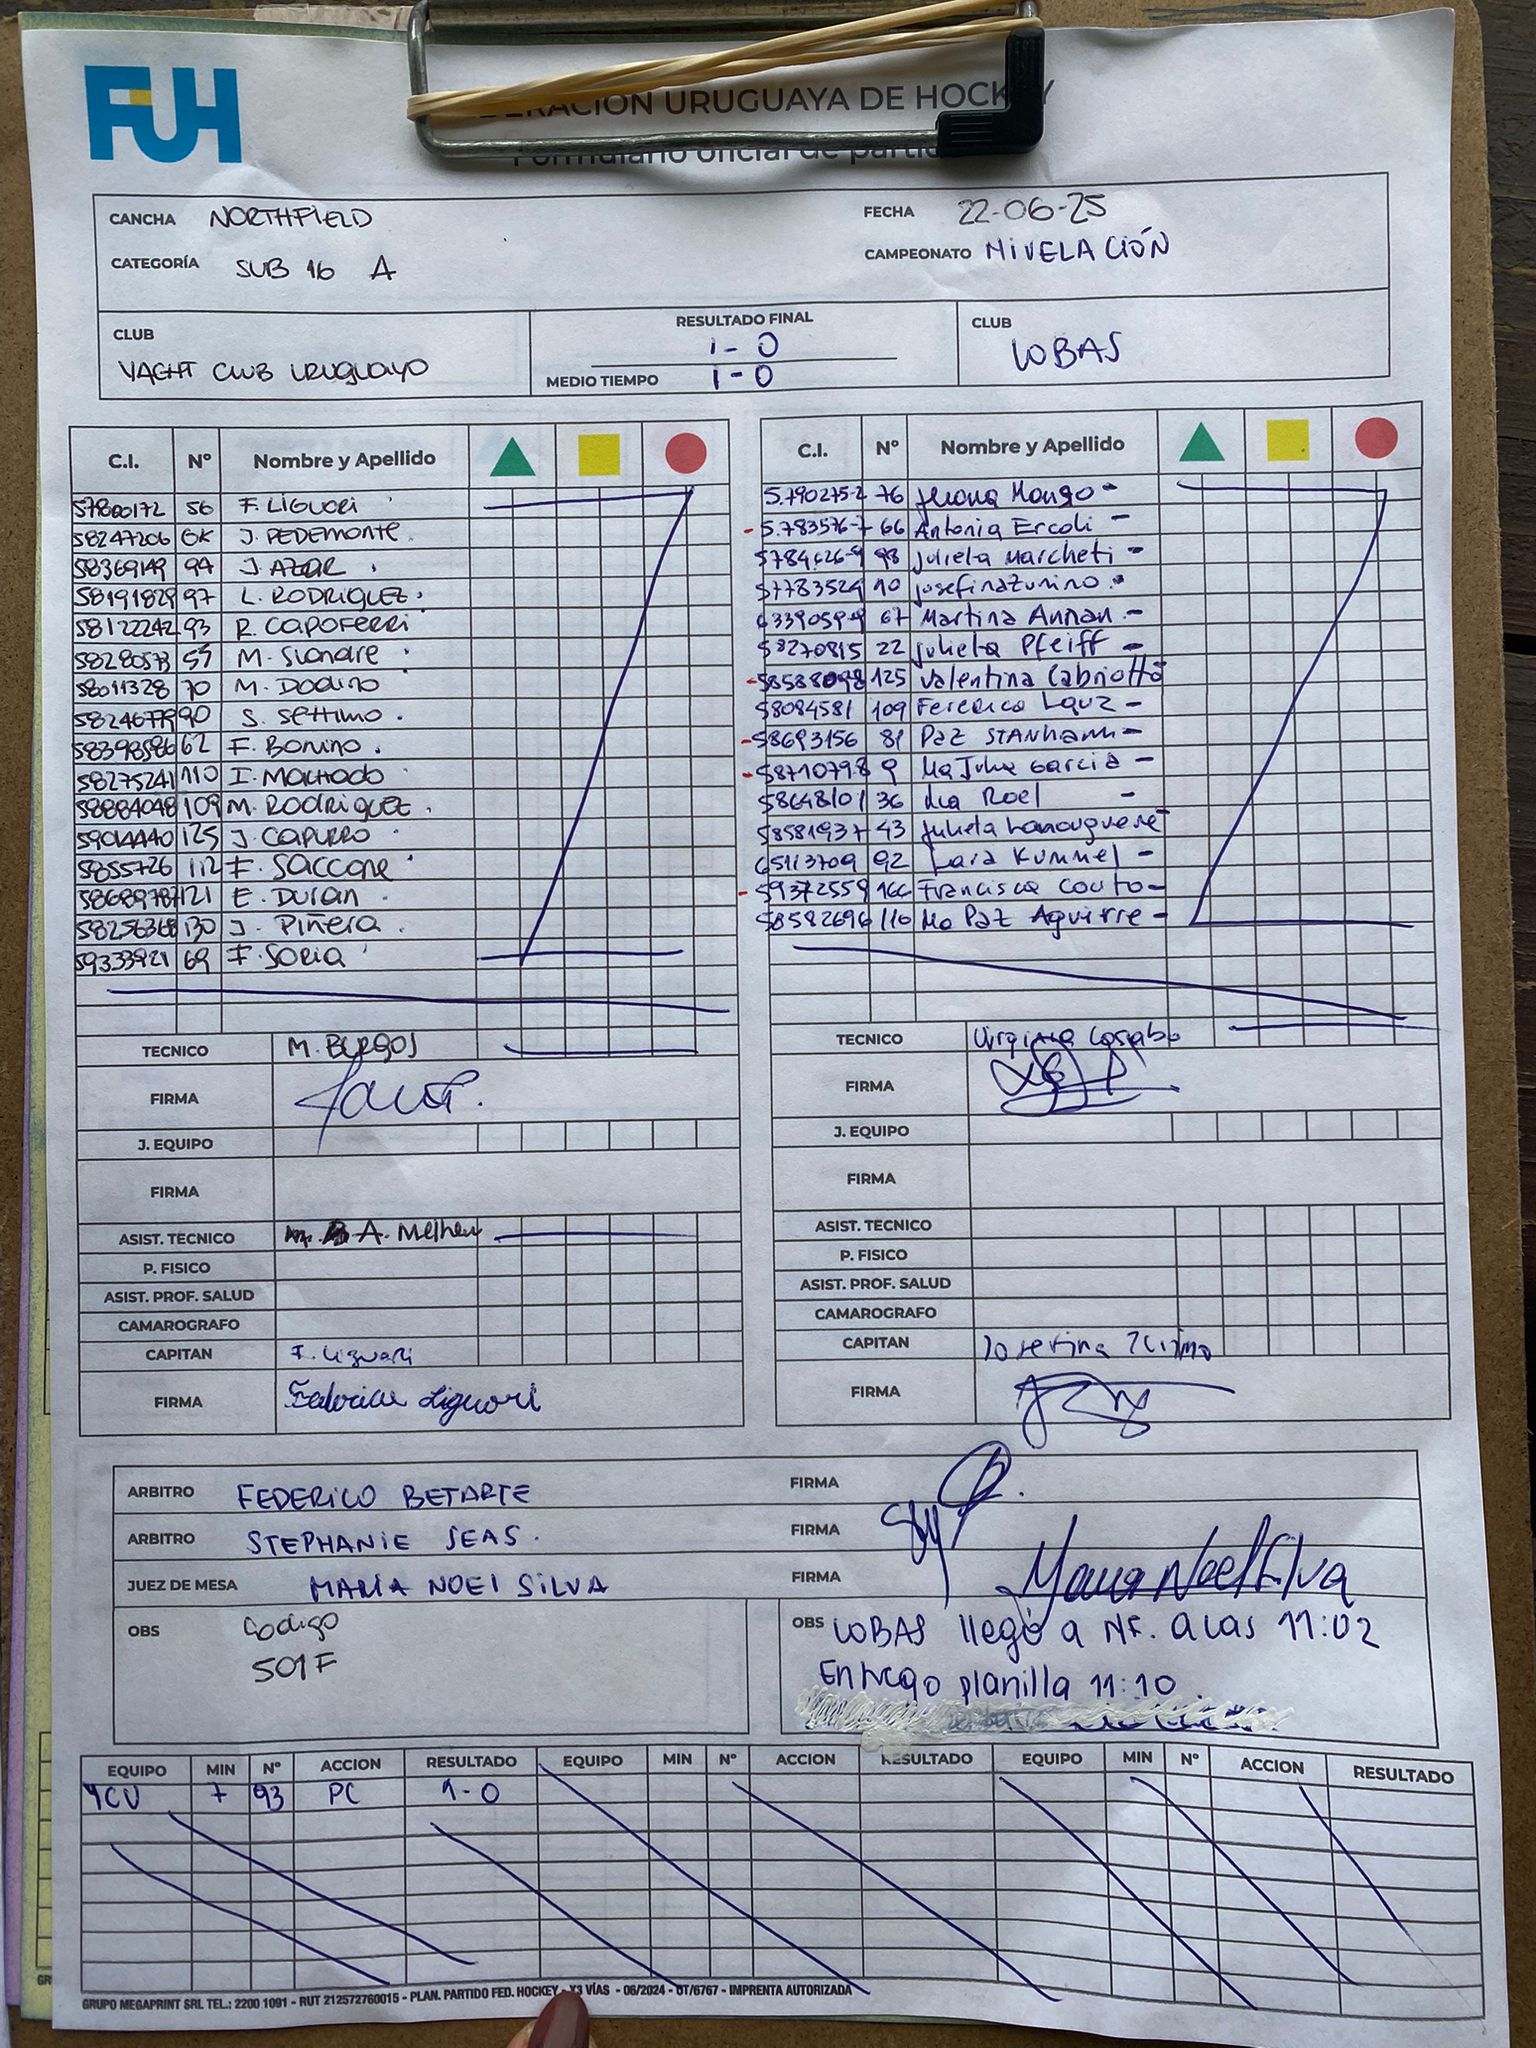 FUH
FEDERACIÓN URUGUAYA DE HOCKEY
Formulario oficial de partido
CANCHA NORTHFIELD FECHA 22-06-25
CATEGORÍA SUB 16 A CAMPEONATO NIVELACIÓN
CLUB RESULTADO FINAL CLUB
YACHT CLUB URUGUAYO 1-0 LOBAS
MEDIO TIEMPO 1-0
C.I. Nº Nombre y Apellido
57800172 56 F. LIGUORI
58247206 GK J. PEDEMONTE
58369149 94 J. AZAR
58191829 97 L. RODRIGUEZ
58122242 93 R. CAPOFERRI
M. Siandre
58011328 70 M. Dodino
58246779 90 S. Settimo
58398586 62 F. Bonino
58275241 110 I. Machado
58884048 109 M. Rodriguez
125 J. CAPURRO
5855726 112 F. SACCONE
58689787 121 E. DURAN
58256368 130 J. Piñera
59333921 69 F. SORIA
TECNICO M. BURGOS
FIRMA
J. EQUIPO
FIRMA
ASIST. TECNICO A. Melhem
P. FISICO
ASIST. PROF. SALUD
CAMAROGRAFO
CAPITAN F. Liguori
FIRMA Liguori
C.I. Nº Nombre y Apellido
5.790275-2 76
5.783576-7 66 Antonia Ercoli -
98 Julieta Marcheti -
57783524 10 Josefina Zunino -
67 Martina Annan -
58270815 22 Julieta Pfeiff -
125 Valentina
58084581 109
58693156 81 Paz STANHAM -
9 Ma Julia Garcia -
58648101 36 Roel -
58581937 43 Julieta
65113709 92 Lara Kummel -
59372559 166 Francisca Couto -
58582696 110 Ma Paz Aguirre -
TECNICO Virginia Casabo
FIRMA
J. EQUIPO
FIRMA
ASIST. TECNICO
P. FISICO
ASIST. PROF. SALUD
CAMAROGRAFO
CAPITAN Josefina Zunino
FIRMA
ARBITRO FEDERICO BETARTE FIRMA
ARBITRO STEPHANIE SEAS. FIRMA
JUEZ DE MESA MARÍA NOEL SILVA FIRMA Maria Noel Silva
OBS Codigo
501F
OBS LOBAS llegó a NF. a las 11:02
Entrego planilla 11:10
EQUIPO MIN Nº ACCION RESULTADO EQUIPO MIN Nº ACCION RESULTADO EQUIPO MIN Nº ACCION RESULTADO
YCU 7 93 PC 1-0
GRUPO MEGAPRINT SRL TEL.: 2200 1091 - RUT 212572760015 - PLAN. PARTIDO FED. HOCKEY - X3 VÍAS - 06/2024 - OT/6767 - IMPRENTA AUTORIZADA